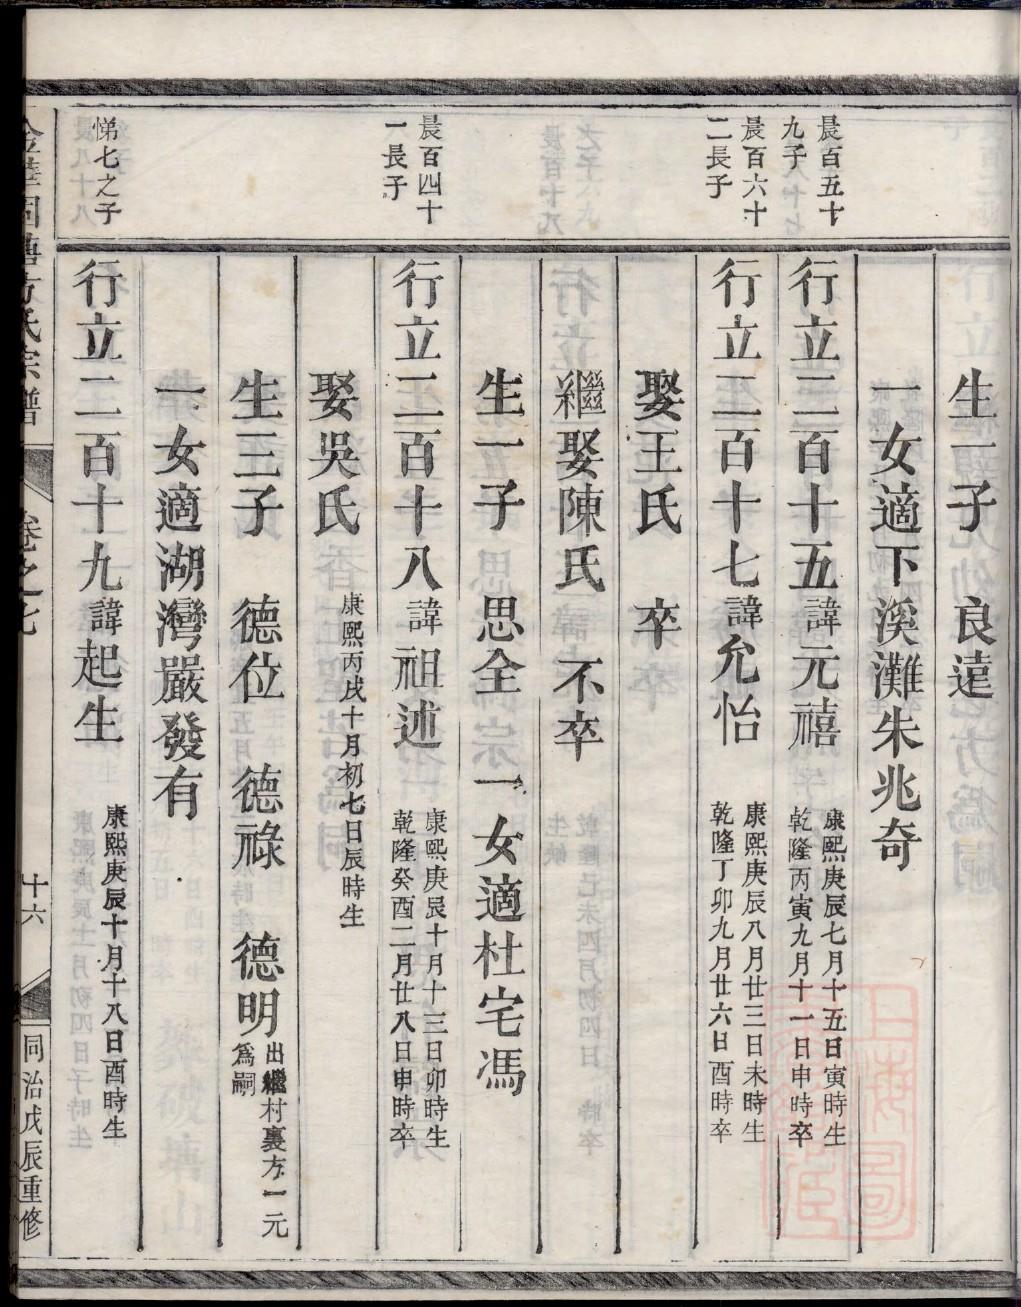 生一子　良遠
一女適下溪灘朱兆奇
晨百五十
九子
行立二百十五諱元禧
康熙庚辰七月十五日寅時生
乾隆丙寅九月十一日申時卒
晨百六十
二長子
行立二百十七諱允怡
康熙庚辰八月廿三日未時生
乾隆丁卯九月廿六日酉時卒
娶王氏　卒
繼娶陳氏　不卒
生一子　思全　一女適杜宅馮
晨百四十
一長子
行立二百十八諱祖述
康熙庚辰十月十三日卯時生
乾隆癸酉二月廿八日申時卒
娶吳氏
康熙丙戌十月初七日辰時生
生三子　德位　德祿　德明
出繼村裏方一元
為嗣
一女適湖灣嚴發有
悌七之子
行立二百十九諱起生
康熙庚辰十月十八日酉時生
氏宗譜
卷之七
十六
同治戊辰重修